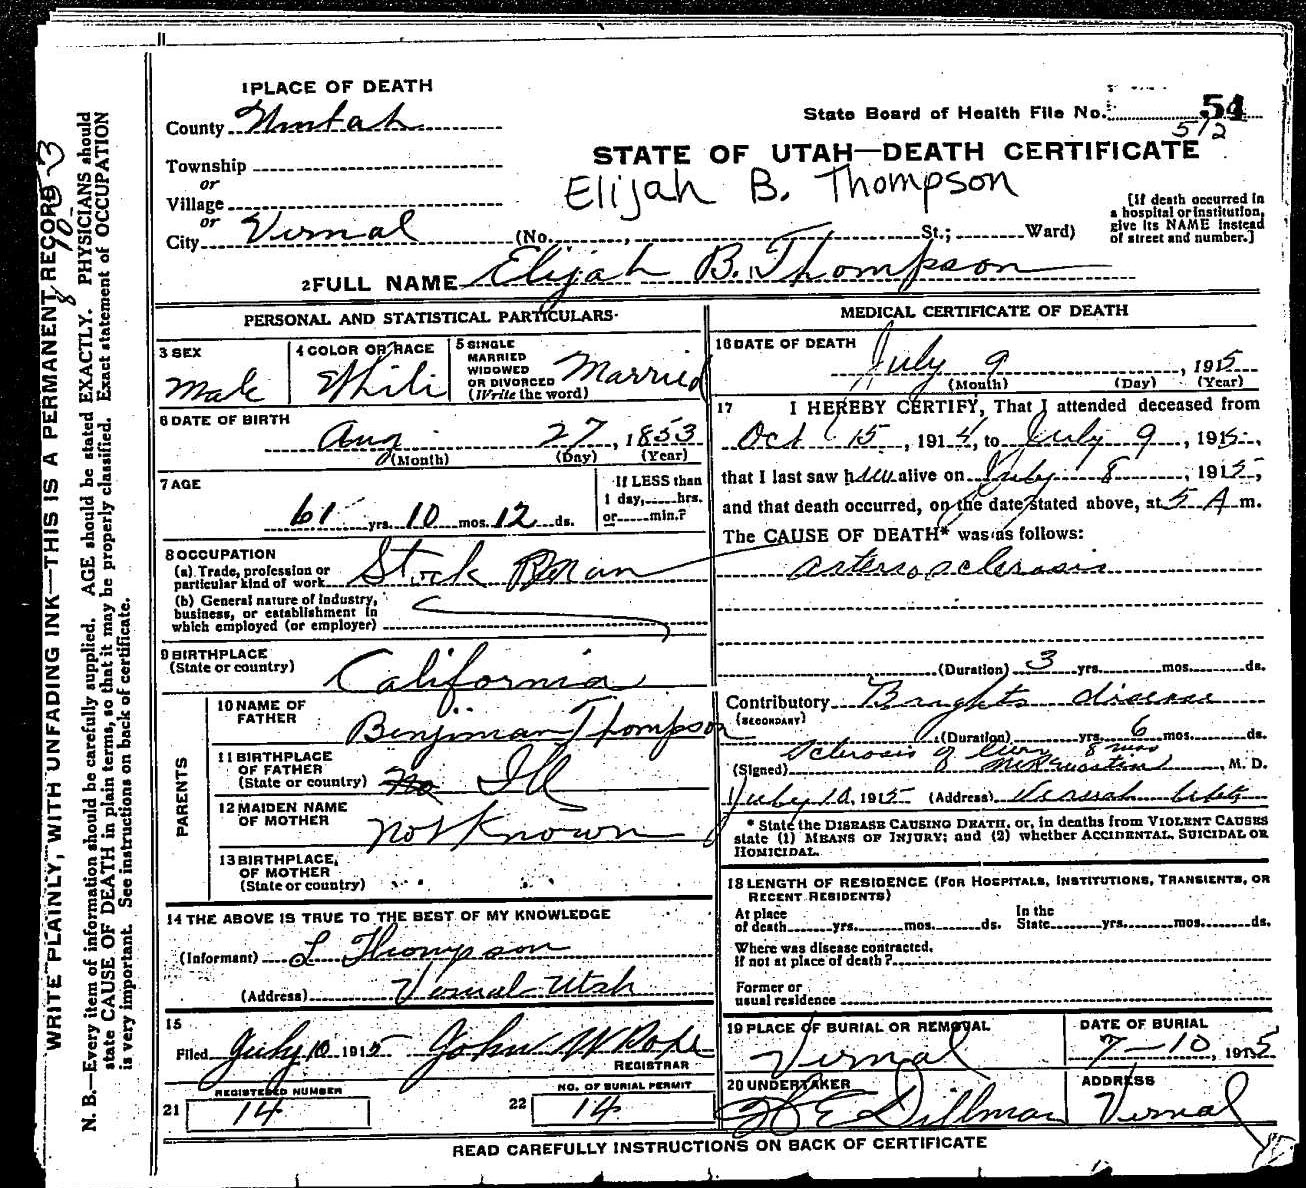 1 PLACE OF DEATH
County Uintah
Township
or
Village
or
City Vernal
State Board of Health File No. 54
512
STATE OF UTAH—DEATH CERTIFICATE
Elijah B. Thompson
(No. , St.; Ward)
[If death occurred in
a hospital or institution,
give its NAME instead
of street and number.]
2 FULL NAME Elijah B. Thompson
PERSONAL AND STATISTICAL PARTICULARS
3 SEX
Male
4 COLOR OR RACE
White
5 SINGLE
MARRIED
WIDOWED
OR DIVORCED
(Write the word)
Married
6 DATE OF BIRTH
Aug 27, 1853
(Month) (Day) (Year)
7 AGE
61 yrs. 10 mos. 12 ds.
If LESS than
1 day, hrs.
or min.?
8 OCCUPATION
(a) Trade, profession or
particular kind of work Stock Man
(b) General nature of Industry,
business, or establishment in
which employed (or employer)
9 BIRTHPLACE
(State or country)
California
PARENTS
10 NAME OF
FATHER
Benjiman Thompson
11 BIRTHPLACE
OF FATHER
(State or country) Ill
12 MAIDEN NAME
OF MOTHER
not Known
13 BIRTHPLACE,
OF MOTHER
(State or country)
14 THE ABOVE IS TRUE TO THE BEST OF MY KNOWLEDGE
(Informant) L Thompson
(Address) Vernal Utah
15
Filed July 10 1915 John W Pope
REGISTRAR
REGISTERED NUMBER
21 14
NO. OF BURIAL PERMIT
22 14
MEDICAL CERTIFICATE OF DEATH
16 DATE OF DEATH
July 9, 1915
(Month) (Day) (Year)
17 I HEREBY CERTIFY, That I attended deceased from
Oct 15, 1914, to July 9, 1915,
that I last saw him alive on July 8, 1915,
and that death occurred, on the date stated above, at 5 A m.
The CAUSE OF DEATH* was as follows:
arterio sclerosis
(Duration) 3 yrs. mos. ds.
Contributory Brights disease
(SECONDARY)
(Duration) yrs. 6 mos. ds.
Sclerosis of 8 mos
(Signed) , M. D.
July 10, 1915 (Address) Vernal Utah
* State the DISEASE CAUSING DEATH, or, in deaths from VIOLENT CAUSES
state (1) MEANS OF INJURY; and (2) whether ACCIDENTAL, SUICIDAL OR
HOMICIDAL.
18 LENGTH OF RESIDENCE (FOR HOSPITALS, INSTITUTIONS, TRANSIENTS, OR
RECENT RESIDENTS)
At place
of death yrs. mos. ds.
In the
State yrs. mos. ds.
Where was disease contracted,
if not at place of death?
Former or
usual residence
19 PLACE OF BURIAL OR REMOVAL
Vernal
DATE OF BURIAL
7-10, 1915
20 UNDERTAKER
E Dillman
ADDRESS
Vernal
READ CAREFULLY INSTRUCTIONS ON BACK OF CERTIFICATE
WRITE PLAINLY, WITH UNFADING INK—THIS IS A PERMANENT RECORD
N. B.—Every item of information should be carefully supplied. AGE should be stated EXACTLY. PHYSICIANS should
state CAUSE OF DEATH in plain terms, so that it may be properly classified. Exact statement of OCCUPATION
is very important. See instructions on back of certificate.